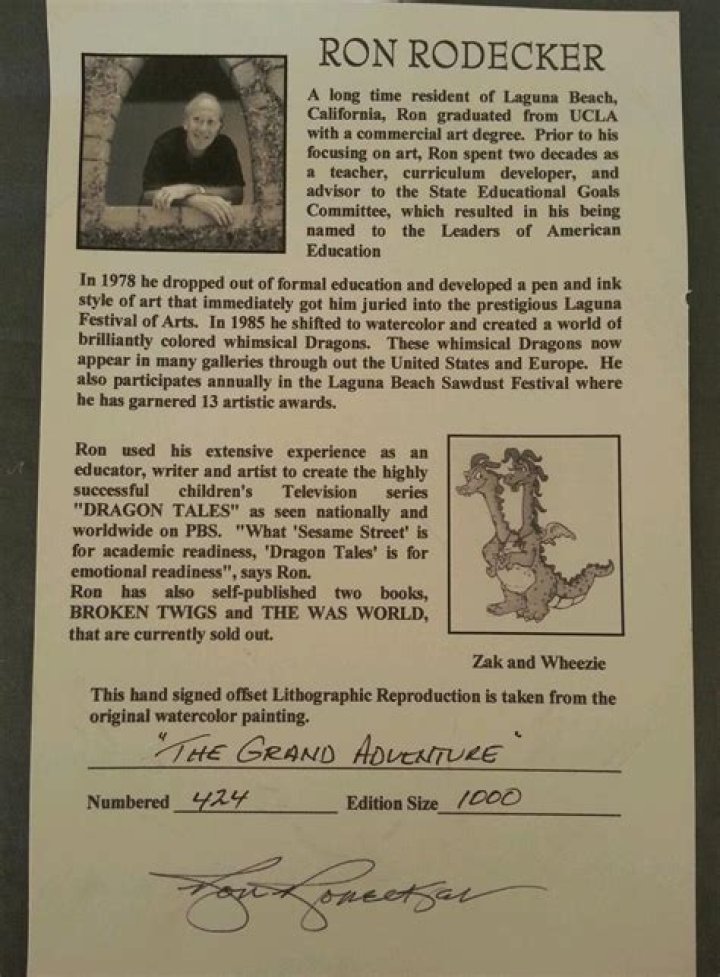 RON RODECKER
A long time resident of Laguna Beach,
California, Ron graduated from UCLA
with a commercial art degree. Prior to his
focusing on art, Ron spent two decades as
a teacher, curriculum developer, and
advisor to the State Educational Goals
Committee, which resulted in his being
named to the Leaders of American
Education
In 1978 he dropped out of formal education and developed a pen and ink
style of art that immediately got him juried into the prestigious Laguna
Festival of Arts. In 1985 he shifted to watercolor and created a world of
brilliantly colored whimsical Dragons. These whimsical Dragons now
appear in many galleries through out the United States and Europe. He
also participates annually in the Laguna Beach Sawdust Festival where
he has garnered 13 artistic awards.
Ron used his extensive experience as an
educator, writer and artist to create the highly
successful children's Television series
"DRAGON TALES" as seen nationally and
worldwide on PBS. "What 'Sesame Street' is
for academic readiness, 'Dragon Tales' is for
emotional readiness", says Ron.
Ron has also self-published two books,
BROKEN TWIGS and THE WAS WORLD,
that are currently sold out.
Zak and Wheezie
This hand signed offset Lithographic Reproduction is taken from the
original watercolor painting.
"THE GRAND ADVENTURE"
Numbered 424 Edition Size 1000
Ron Rodecker